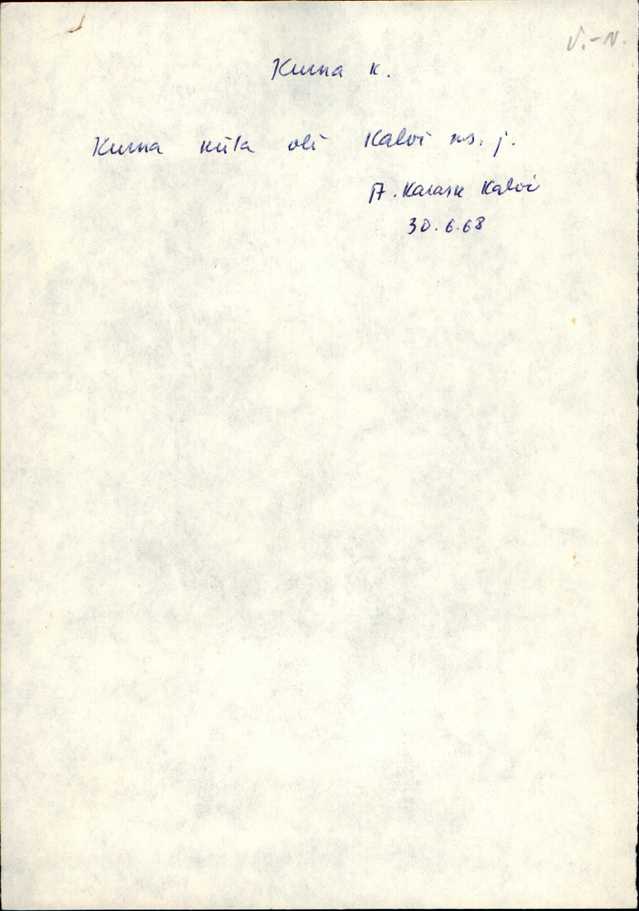 V.-N.
Kurna k.
Kurna küla oli Kalvi ms. j.
A. Karask Kalvi
30.6.68